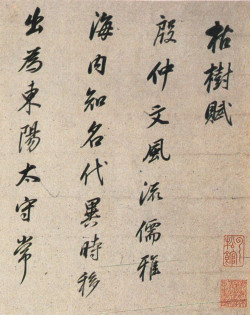 枯樹賦
殷仲文風流儒雅
海內知名代異時移
出為東陽太守常